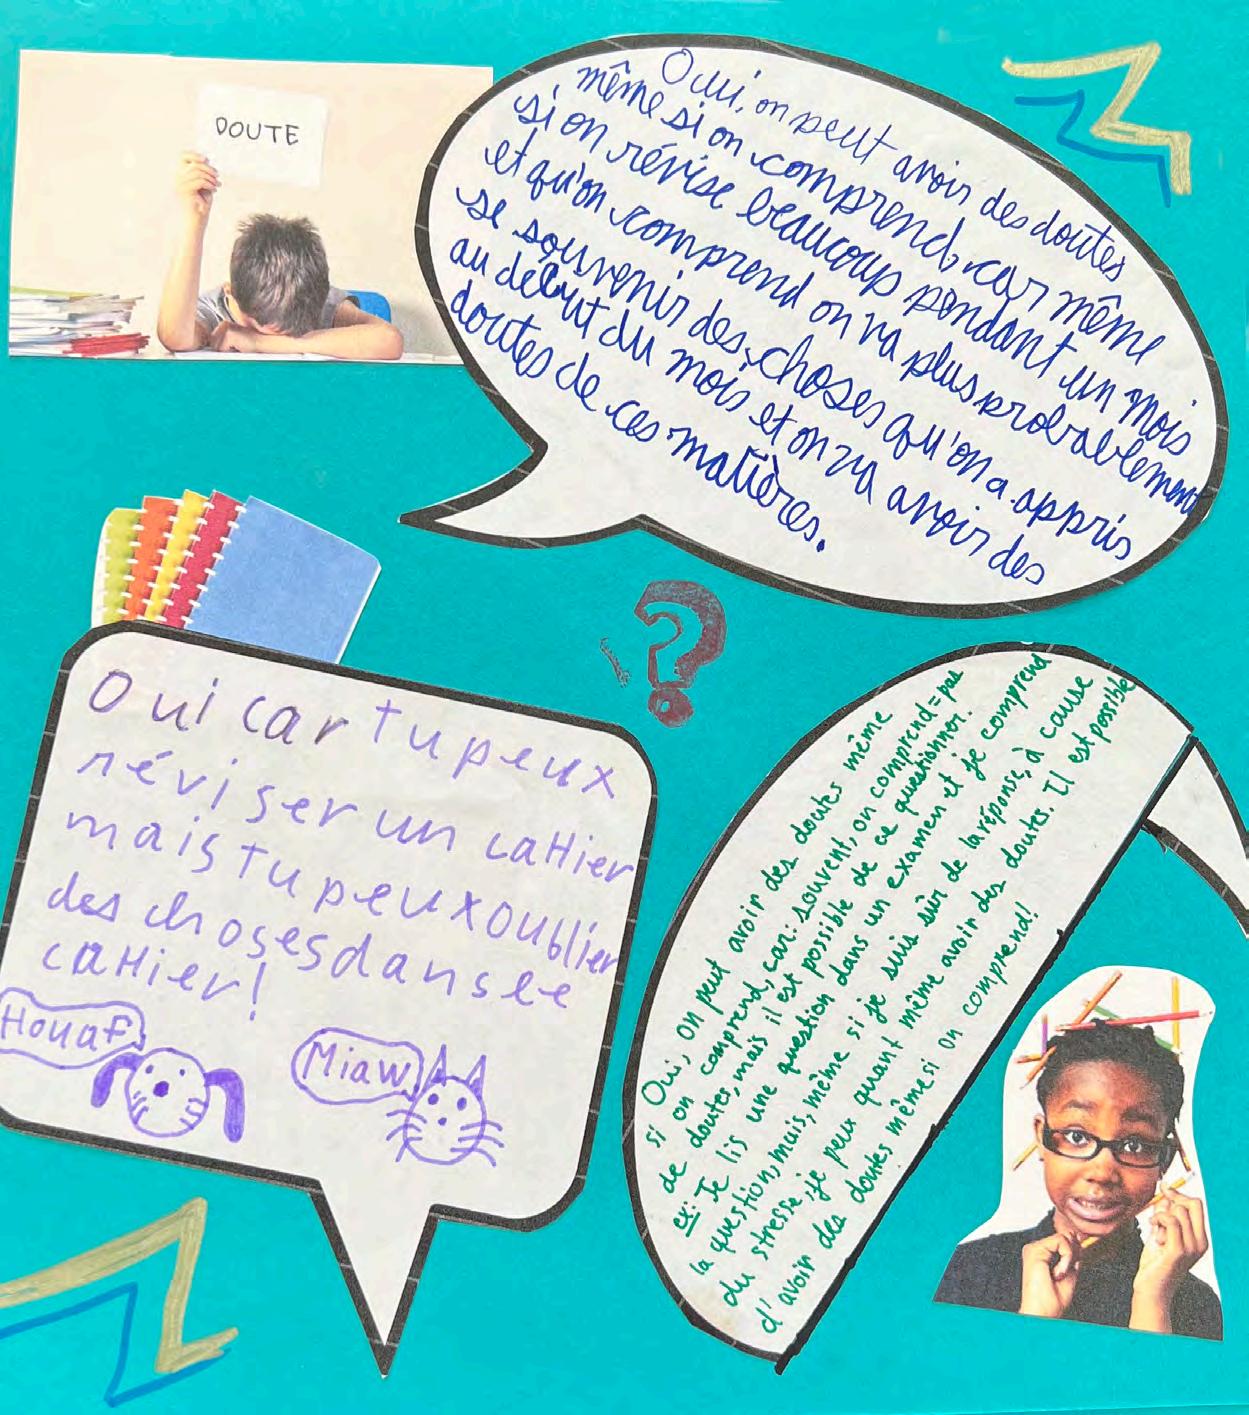 DOUTE
Oui, on peut avoir des doutes
même si on comprend, car même
si on révise beaucoup pendant un mois
et qu'on comprend on va plus probablement
se souvenir des choses qu'on a appris
au début du mois et on va avoir des
doutes de ces matières.
?
Oui car tu peux
réviser un caHier
mais tu peux oublier
des choses dans le
caHier!
Houaf
Miaw
Oui, on peut avoir des doutes même
si on comprend, car: souvent, on comprend=pas
de doutes, mais il est possible de ce questionner.
ex: Je lis une question dans un examen et je comprend
la question, mais, même si je suis sûr de la réponse, à cause
du stresse, je peux quant même avoir des doutes. Il est possible
d'avoir des doutes même si on comprend!